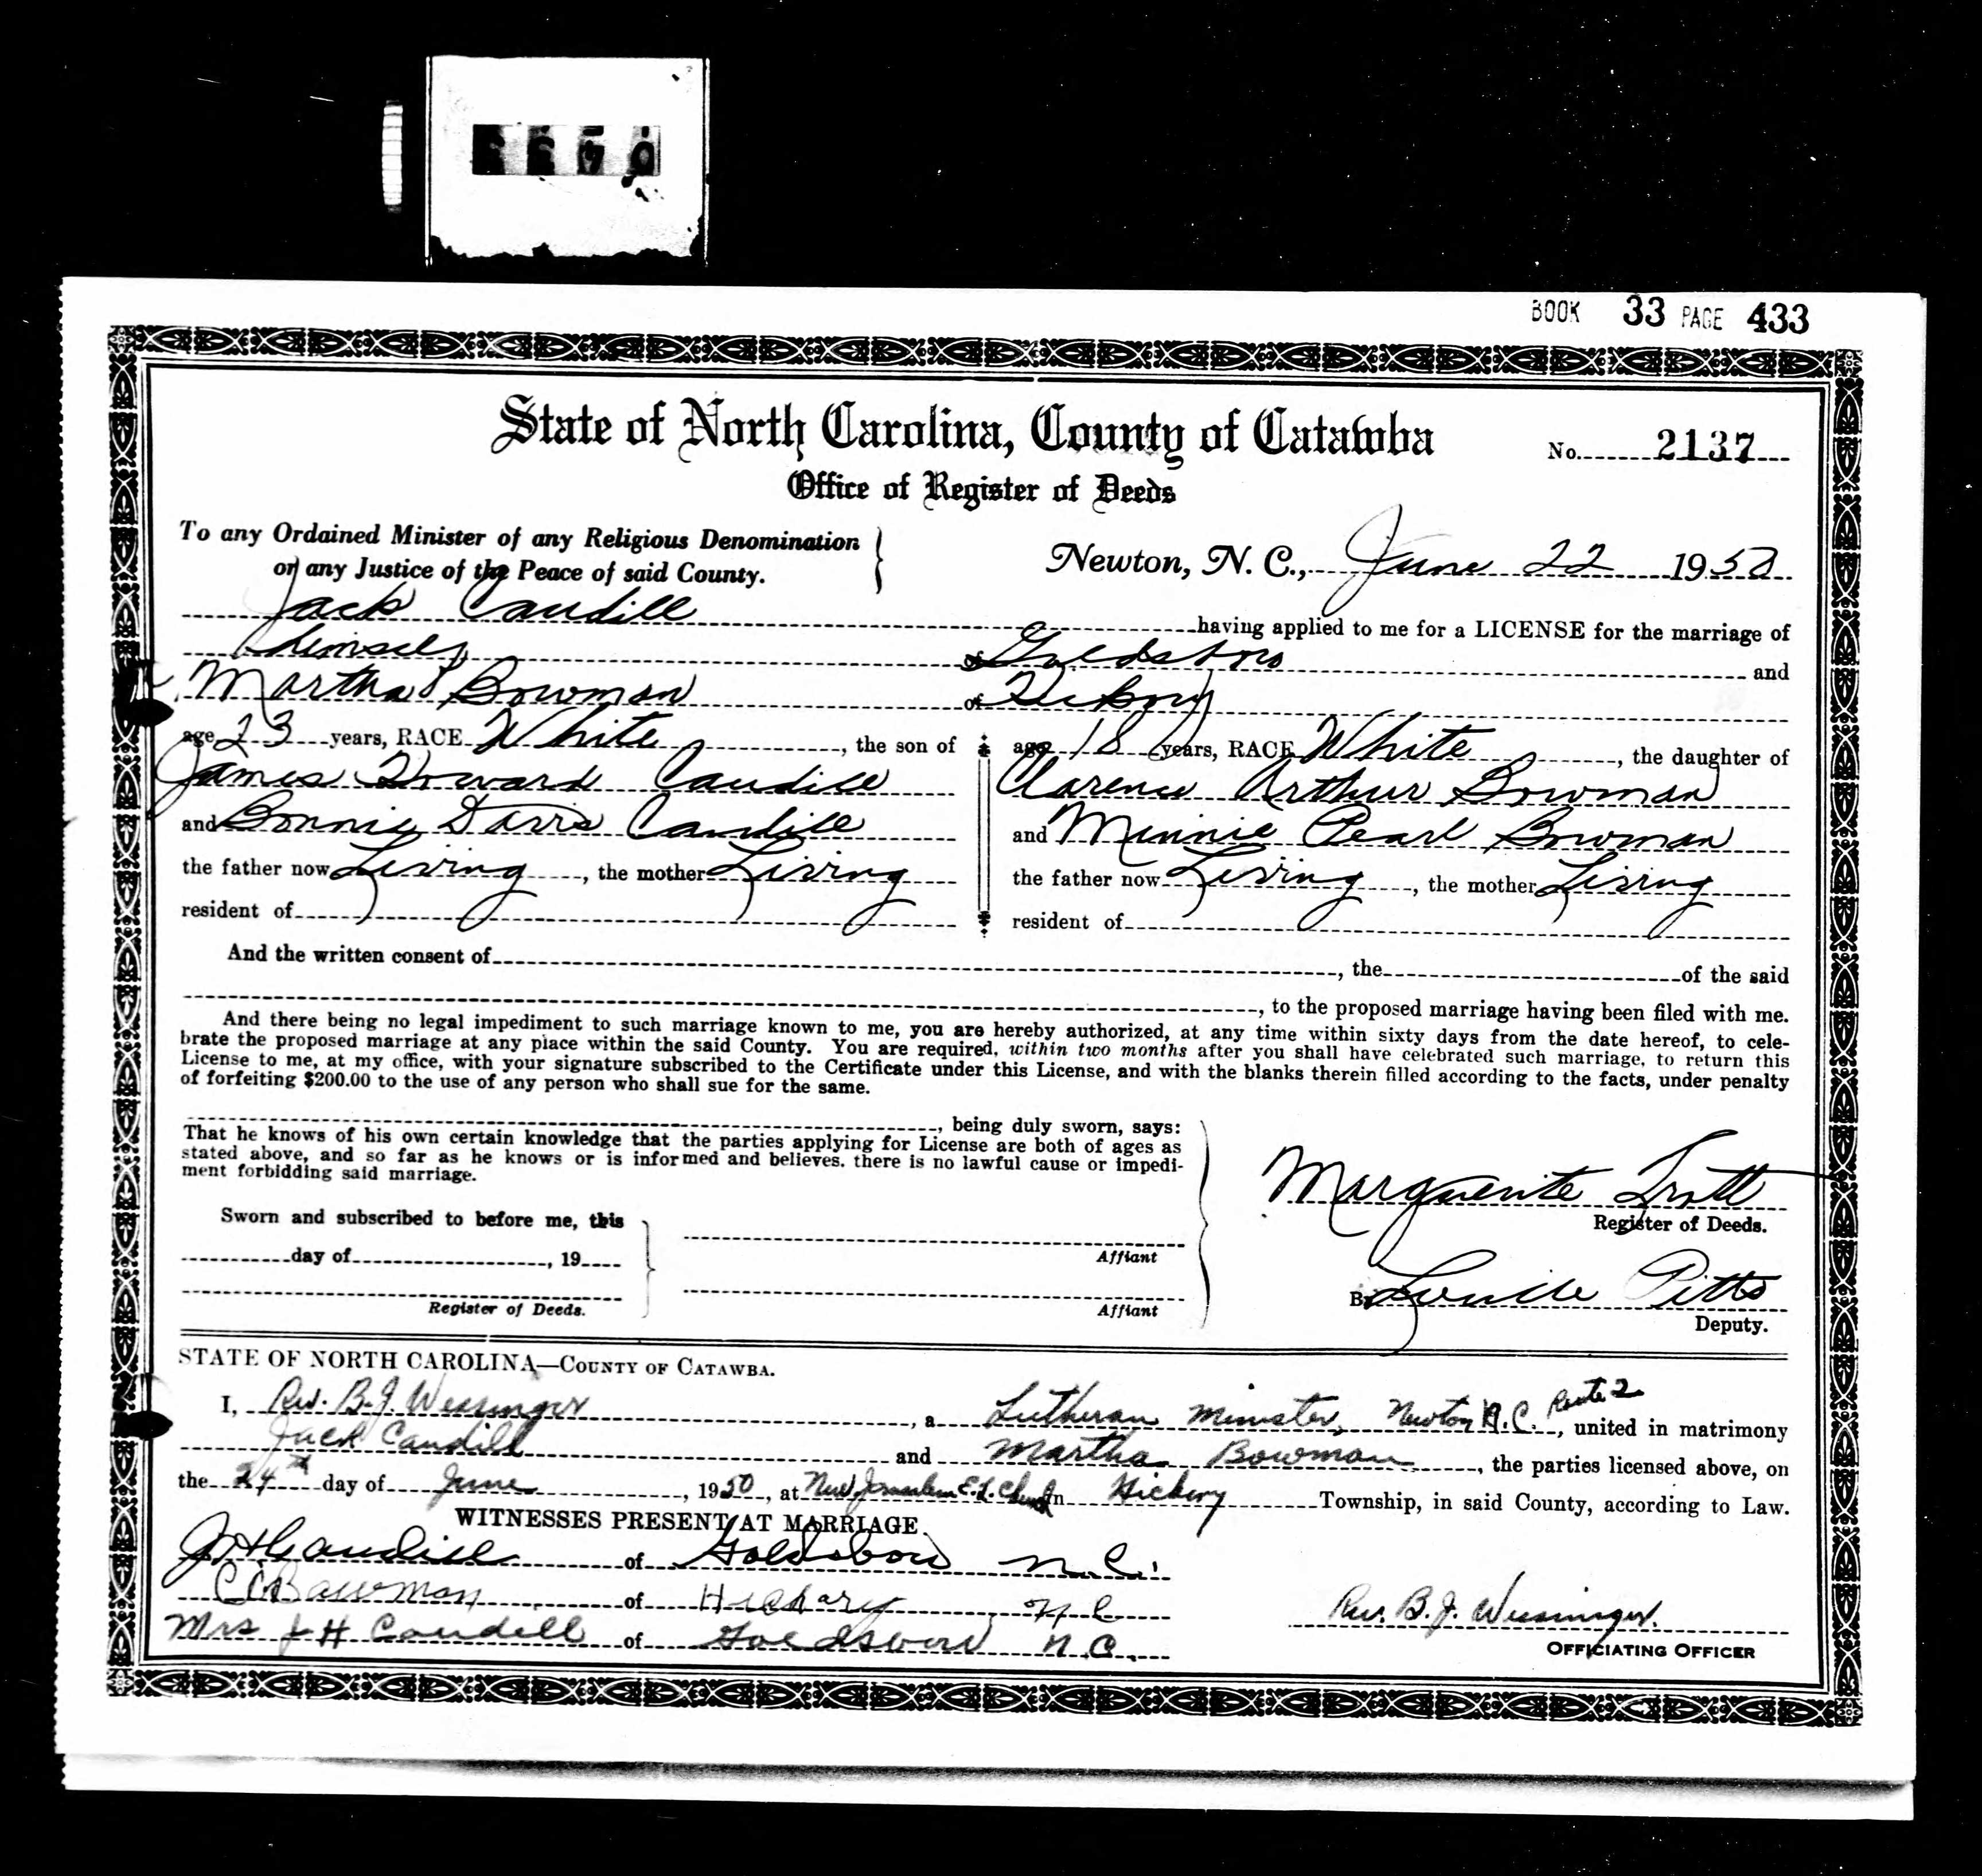 BOOK 33 PAGE 433
State of North Carolina, County of Catawba
No. 2137
Office of Register of Deeds
To any Ordained Minister of any Religious Denomination
or any Justice of the Peace of said County.
Newton, N. C., June 22 1950
Jack Caudill having applied to me for a LICENSE for the marriage of
himself of Goldsboro and
Martha Bowman of Hickory
age 23 years, RACE White, the son of
James Howard Caudill
and Bonnie Davis Caudill
the father now Living, the mother Living
resident of
age 18 years, RACE White, the daughter of
Clarence Arthur Bowman
and Minnie Pearl Bowman
the father now Living, the mother Living
resident of
And the written consent of , the of the said
, to the proposed marriage having been filed with me.
And there being no legal impediment to such marriage known to me, you are hereby authorized, at any time within sixty days from the date hereof, to cele-
brate the proposed marriage at any place within the said County. You are required, within two months after you shall have celebrated such marriage, to return this
License to me, at my office, with your signature subscribed to the Certificate under this License, and with the blanks therein filled according to the facts, under penalty
of forfeiting $200.00 to the use of any person who shall sue for the same.
, being duly sworn, says:
That he knows of his own certain knowledge that the parties applying for License are both of ages as
stated above, and so far as he knows or is informed and believes, there is no lawful cause or impedi-
ment forbidding said marriage.
Sworn and subscribed to before me, this
day of , 19
Register of Deeds.
Affiant
Affiant
Marguerite Trott
Register of Deeds.
By Lucille Pitts
Deputy.
STATE OF NORTH CAROLINA—COUNTY OF CATAWBA.
I, Rev. B. J. Wessinger, a Lutheran minister, Newton N. C. Route 2, united in matrimony
Jack Caudill and Martha Bowman, the parties licensed above, on
the 24th day of June, 1950, at New Jerusalem E. L. Church in Hickory Township, in said County, according to Law.
WITNESSES PRESENT AT MARRIAGE
J H Caudill of Goldsboro N.C.
C A Bowman of Hickory N C
Mrs J H Caudill of Goldsboro N.C.
Rev. B. J. Wessinger.
OFFICIATING OFFICER